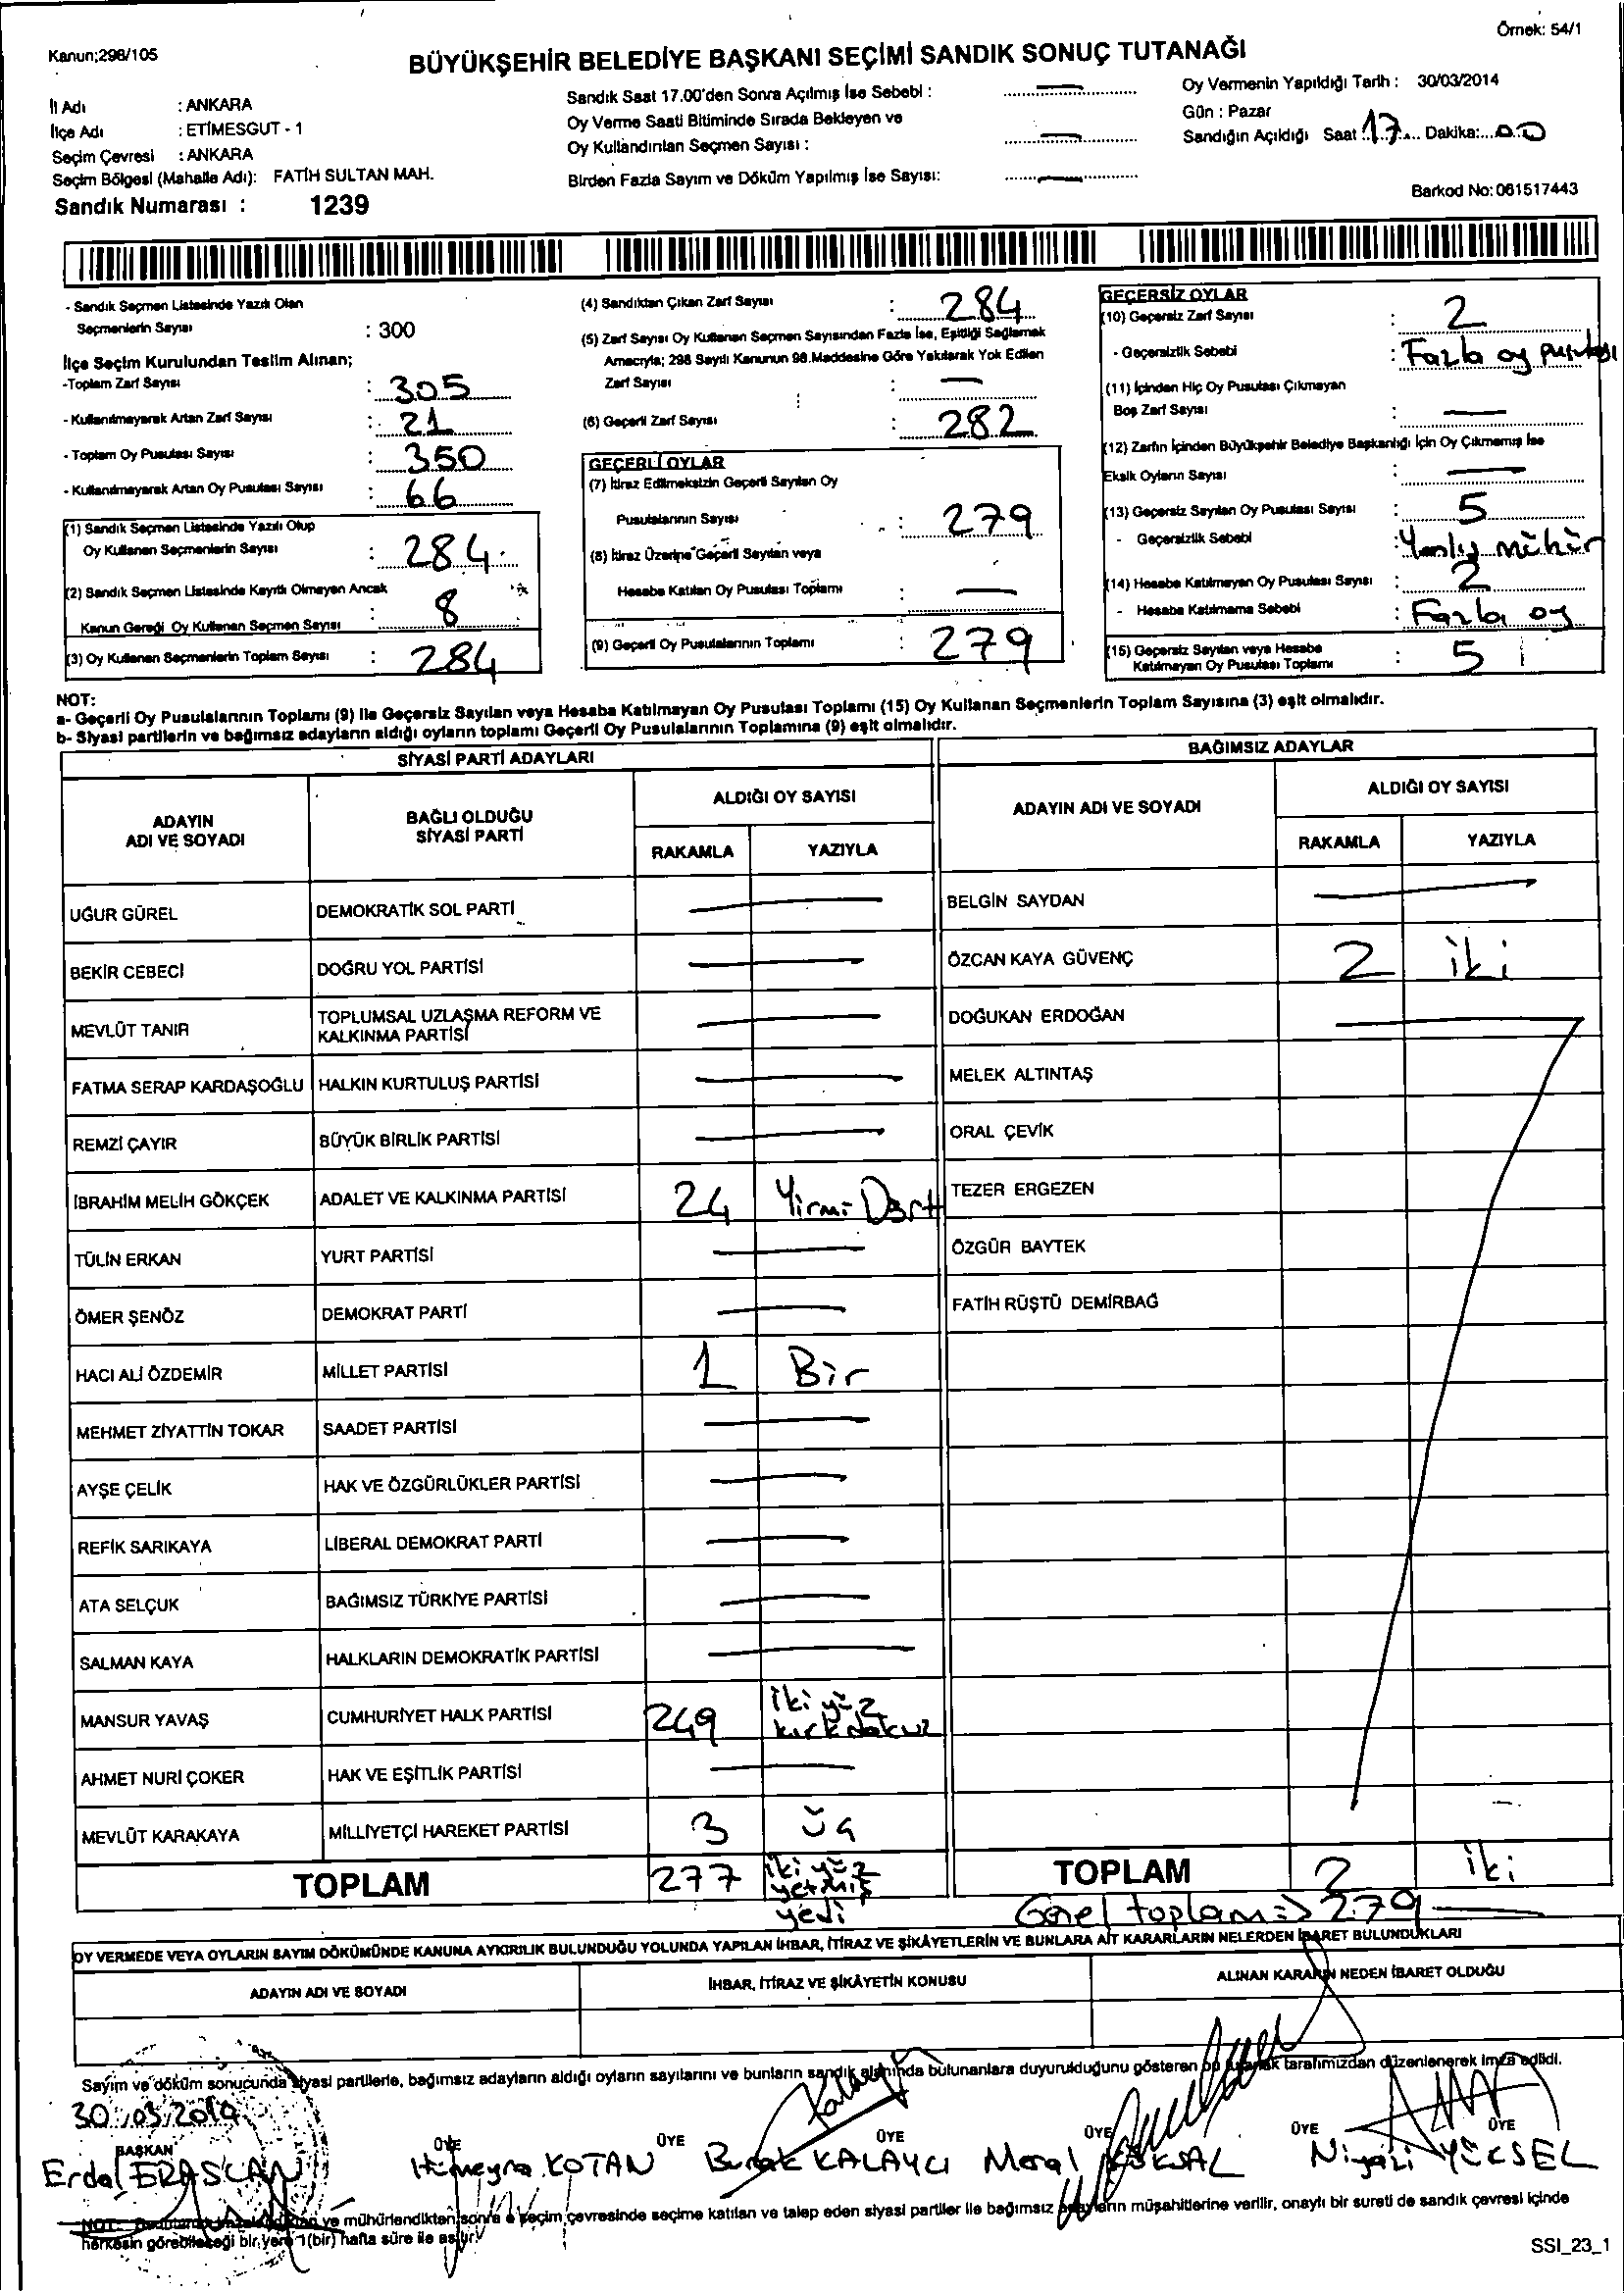 Örnek: 54/1
Kanun;298/105
BÜYÜKŞEHİR BELEDİYE BAŞKANI SEÇİMİ SANDIK SONUÇ TUTANAĞI
İl Adı : ANKARA
İlçe Adı : ETİMESGUT - 1
Seçim Çevresi : ANKARA
Seçim Bölgesi (Mahalle Adı): FATİH SULTAN MAH.
Sandık Numarası : 1239
Sandık Saat 17.00'den Sonra Açılmış İse Sebebi : —
Oy Verme Saati Bitiminde Sırada Bekleyen ve
Oy Kullandırılan Seçmen Sayısı : —
Birden Fazla Sayım ve Döküm Yapılmış İse Sayısı: —
Oy Vermenin Yapıldığı Tarih : 30/03/2014
Gün : Pazar
Sandığın Açıldığı Saat 17 Dakika: 00
Barkod No: 061517443
- Sandık Seçmen Listesinde Yazılı Olan
Seçmenlerin Sayısı : 300
İlçe Seçim Kurulundan Teslim Alınan;
-Toplam Zarf Sayısı : 305
- Kullanılmayarak Artan Zarf Sayısı : 21
- Toplam Oy Pusulası Sayısı : 350
- Kullanılmayarak Artan Oy Pusulası Sayısı : 66
(1) Sandık Seçmen Listesinde Yazılı Olup
Oy Kullanan Seçmenlerin Sayısı : 284
(2) Sandık Seçmen Listesinde Kayıtlı Olmayan Ancak
Kanun Gereği Oy Kullanan Seçmen Sayısı : 8
(3) Oy Kullanan Seçmenlerin Toplam Sayısı : 284
(4) Sandıktan Çıkan Zarf Sayısı : 284
(5) Zarf Sayısı Oy Kullanan Seçmen Sayısından Fazla İse, Eşitliği Sağlamak
Amacıyla; 298 Sayılı Kanunun 98.Maddesine Göre Yakılarak Yok Edilen
Zarf Sayısı : —
(6) Geçerli Zarf Sayısı : 282
GEÇERLİ OYLAR
(7) İtiraz Edilmeksizin Geçerli Sayılan Oy
Pusulalarının Sayısı : 279
(8) İtiraz Üzerine Geçerli Sayılan veya
Hesaba Katılan Oy Pusulası Toplamı : —
(9) Geçerli Oy Pusulalarının Toplamı : 279
GEÇERSİZ OYLAR
(10) Geçersiz Zarf Sayısı : 2
- Geçersizlik Sebebi : Fazla oy pusulası
(11) İçinden Hiç Oy Pusulası Çıkmayan
Boş Zarf Sayısı : —
(12) Zarfın İçinden Büyükşehir Belediye Başkanlığı İçin Oy Çıkmamış İse
Eksik Oyların Sayısı : —
(13) Geçersiz Sayılan Oy Pusulası Sayısı : 5
- Geçersizlik Sebebi : Yanlış mühür
(14) Hesaba Katılmayan Oy Pusulası Sayısı : 2
- Hesaba Katılmama Sebebi : Fazla oy
(15) Geçersiz Sayılan veya Hesaba
Katılmayan Oy Pusulası Toplamı : 5
NOT:
a- Geçerli Oy Pusulalarının Toplamı (9) ile Geçersiz Sayılan veya Hesaba Katılmayan Oy Pusulası Toplamı (15) Oy Kullanan Seçmenlerin Toplam Sayısına (3) eşit olmalıdır.
b- Siyasi partilerin ve bağımsız adayların aldığı oyların toplamı Geçerli Oy Pusulalarının Toplamına (9) eşit olmalıdır.
SİYASİ PARTİ ADAYLARI
ADAYIN ADI VE SOYADI BAĞLI OLDUĞU SİYASİ PARTİ ALDIĞI OY SAYISI
RAKAMLA YAZIYLA
UĞUR GÜREL DEMOKRATİK SOL PARTİ —
BEKİR CEBECİ DOĞRU YOL PARTİSİ —
MEVLÜT TANIR TOPLUMSAL UZLAŞMA REFORM VE KALKINMA PARTİSİ —
FATMA SERAP KARDAŞOĞLU HALKIN KURTULUŞ PARTİSİ —
REMZİ ÇAYIR BÜYÜK BİRLİK PARTİSİ —
İBRAHİM MELİH GÖKÇEK ADALET VE KALKINMA PARTİSİ 24 Yirmi Dört
TÜLİN ERKAN YURT PARTİSİ —
ÖMER ŞENÖZ DEMOKRAT PARTİ —
HACI ALİ ÖZDEMİR MİLLET PARTİSİ 1 Bir
MEHMET ZİYATTİN TOKAR SAADET PARTİSİ —
AYŞE ÇELİK HAK VE ÖZGÜRLÜKLER PARTİSİ —
REFİK SARIKAYA LİBERAL DEMOKRAT PARTİ —
ATA SELÇUK BAĞIMSIZ TÜRKİYE PARTİSİ —
SALMAN KAYA HALKLARIN DEMOKRATİK PARTİSİ —
MANSUR YAVAŞ CUMHURİYET HALK PARTİSİ 249 iki yüz kırk dokuz
AHMET NURİ ÇOKER HAK VE EŞİTLİK PARTİSİ —
MEVLÜT KARAKAYA MİLLİYETÇİ HAREKET PARTİSİ 3 üç
TOPLAM 277 iki yüz yetmiş yedi
BAĞIMSIZ ADAYLAR
ADAYIN ADI VE SOYADI ALDIĞI OY SAYISI
RAKAMLA YAZIYLA
BELGİN SAYDAN —
ÖZCAN KAYA GÜVENÇ 2 iki
DOĞUKAN ERDOĞAN —
MELEK ALTINTAŞ
ORAL ÇEVİK
TEZER ERGEZEN
ÖZGÜR BAYTEK
FATİH RÜŞTÜ DEMİRBAĞ
TOPLAM 2 iki
Genel toplam => 279
OY VERMEDE VEYA OYLARIN SAYIM DÖKÜMÜNDE KANUNA AYKIRILIK BULUNDUĞU YOLUNDA YAPILAN İHBAR, İTİRAZ VE ŞİKÂYETLERİN VE BUNLARA AİT KARARLARIN NELERDEN İBARET BULUNDUKLARI
ADAYIN ADI VE SOYADI İHBAR, İTİRAZ VE ŞİKÂYETİN KONUSU ALINAN KARARIN NEDEN İBARET OLDUĞU
Sayım ve döküm sonucunda siyasi partilerle, bağımsız adayların aldığı oyların sayılarını ve bunların sandık alanında bulunanlara duyurulduğunu gösteren bu tutanak tarafımızdan düzenlenerek imza edildi.
30/03/2014
BAŞKAN ÜYE ÜYE ÜYE ÜYE ÜYE ÜYE
Erdal ERASLAN Hümeyra KOTAN Burak KALAYCI Meral KÖKSAL Niyazi YÜKSEL
NOT: ve mühürlendikten sonra o seçim çevresinde seçime katılan ve talep eden siyasi partiler ile bağımsız adayların müşahitlerine verilir, onaylı bir sureti de sandık çevresi içinde
herkesin görebileceği bir yere 1(bir) hafta süre ile asılır.
SSI_23_1